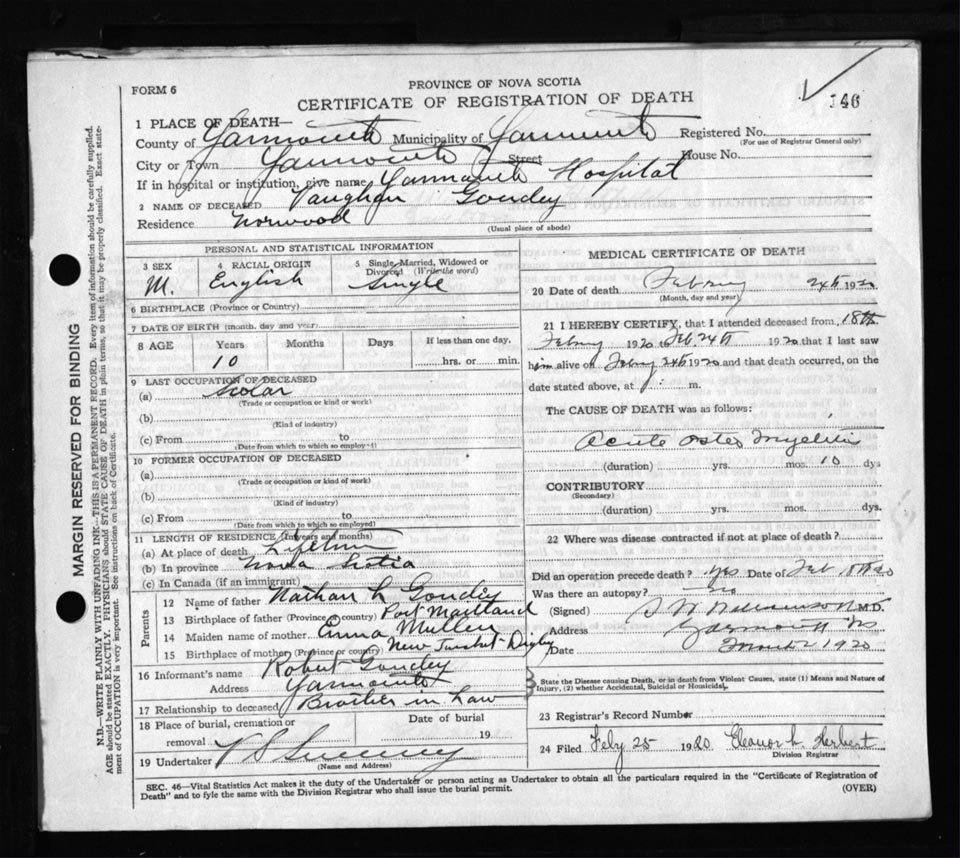 FORM 6
PROVINCE OF NOVA SCOTIA
CERTIFICATE OF REGISTRATION OF DEATH
146
1 PLACE OF DEATH—
County of Yarmouth Municipality of Yarmouth Registered No.
(For use of Registrar General only)
City or Town Yarmouth Street House No.
If in hospital or institution, give name Yarmouth Hospital
2 NAME OF DECEASED Vaughan Goudey
Residence Norwood
(Usual place of abode)
PERSONAL AND STATISTICAL INFORMATION
3 SEX M.
4 RACIAL ORIGIN English
5 Single, Married, Widowed or Divorced (Write the word) Single
6 BIRTHPLACE (Province or Country)
7 DATE OF BIRTH (month, day and year)
8 AGE Years Months Days If less than one day,
10 hrs. or min.
9 LAST OCCUPATION OF DECEASED
(a) Scolar
(Trade or occupation or kind or work)
(b)
(Kind of industry)
(c) From to
(Date from which to which so employed)
10 FORMER OCCUPATION OF DECEASED
(a)
(Trade or occupation or kind of work)
(b)
(Kind of industry)
(c) From to
(Date from which to which so employed)
11 LENGTH OF RESIDENCE (In years and months)
(a) At place of death Lifetime
(b) In province Nova Scotia
(c) In Canada (if an immigrant)
Parents
12 Name of father Nathan L Goudey
13 Birthplace of father (Province or country) Port Maitland
14 Maiden name of mother Emma Mullen
15 Birthplace of mother (Province or country) New Tusket - Digby
16 Informant's name Robert Goudey
Address Yarmouth
17 Relationship to deceased Brother in Law
18 Place of burial, cremation or removal
Date of burial 19
19 Undertaker V S Sweeney
(Name and Address)
MEDICAL CERTIFICATE OF DEATH
20 Date of death Febury 24th 1920
(Month, day and year)
21 I HEREBY CERTIFY, that I attended deceased from 18th
Febury 1920 to Feb 24th 1920 that I last saw
him alive on Febury 24th 1920 and that death occurred, on the
date stated above, at m.
The CAUSE OF DEATH was as follows:
Acute Osteo Myelitis
(duration) yrs. mos. 10 dys
CONTRIBUTORY
(Secondary)
(duration) yrs. mos. dys.
22 Where was disease contracted if not at place of death?
Did an operation precede death? yes Date of Feb 18th 20
Was there an autopsy? no
(Signed) S W Williamson M.D.
Address Yarmouth NS
Date March 2 1920
State the Disease causing Death, or in death from Violent Causes, state (1) Means and Nature of
Injury, (2) whether Accidental, Suicidal or Homicidal.
23 Registrar's Record Number
24 Filed Feby 25 1920 Eleanor L. Herbert
Division Registrar
SEC. 46—Vital Statistics Act makes it the duty of the Undertaker or person acting as Undertaker to obtain all the particulars required in the "Certificate of Registration of
Death" and to fyle the same with the Division Registrar who shall issue the burial permit.
(OVER)
MARGIN RESERVED FOR BINDING
N.B.—WRITE PLAINLY WITH UNFADING INK—THIS IS A PERMANENT RECORD. Every item of information should be carefully supplied.
AGE should be stated EXACTLY. PHYSICIANS should STATE CAUSE OF DEATH in plain terms, so that it may be properly classified. Exact statement of OCCUPATION is very important. See instructions on back of Certificate.